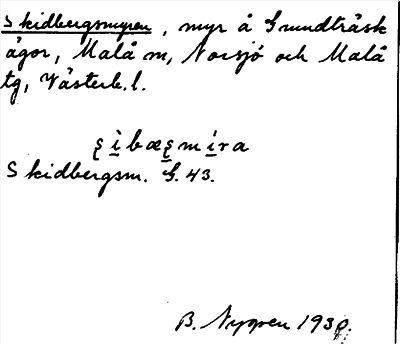 Skidbergsmyren, myr å Grundträsk
ägor, Malå sn, Norsjö och Malå
tg, Västerb. l.
ʂìbæʂmíra
Skidbergsm. G. 43.
B. Nygren 1930.